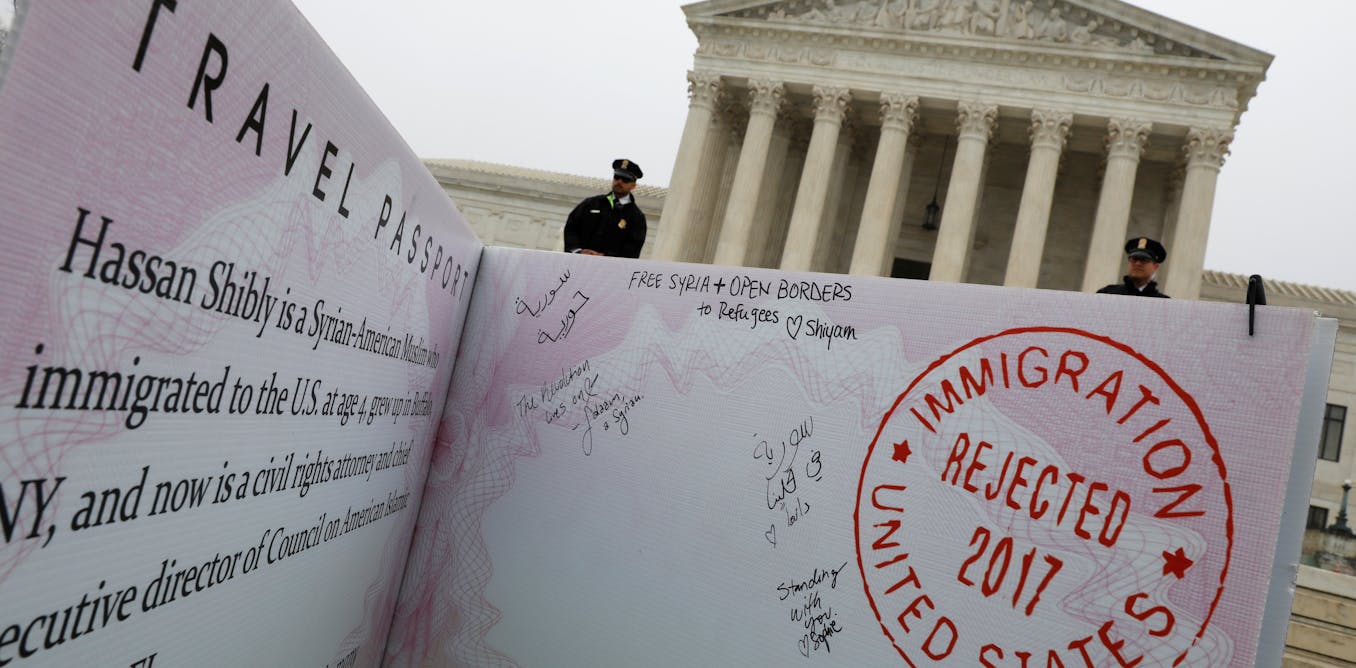 TRAVEL PASSPORT
Hassan Shibly is a Syrian-American Muslim who
immigrated to the U.S. at age 4, grew up in
NY, and now is a civil rights attorney and chief
executive director of Council on American Islamic
FREE SYRIA + OPEN BORDERS
to Refugees ♡ Shiyam
سورية
حرية
The Revolution
lives on!
a Syrian.
سورية
في قلبي
Standing
with
you.
♡ Sophie
IMMIGRATION
REJECTED
2017
UNITED STATES